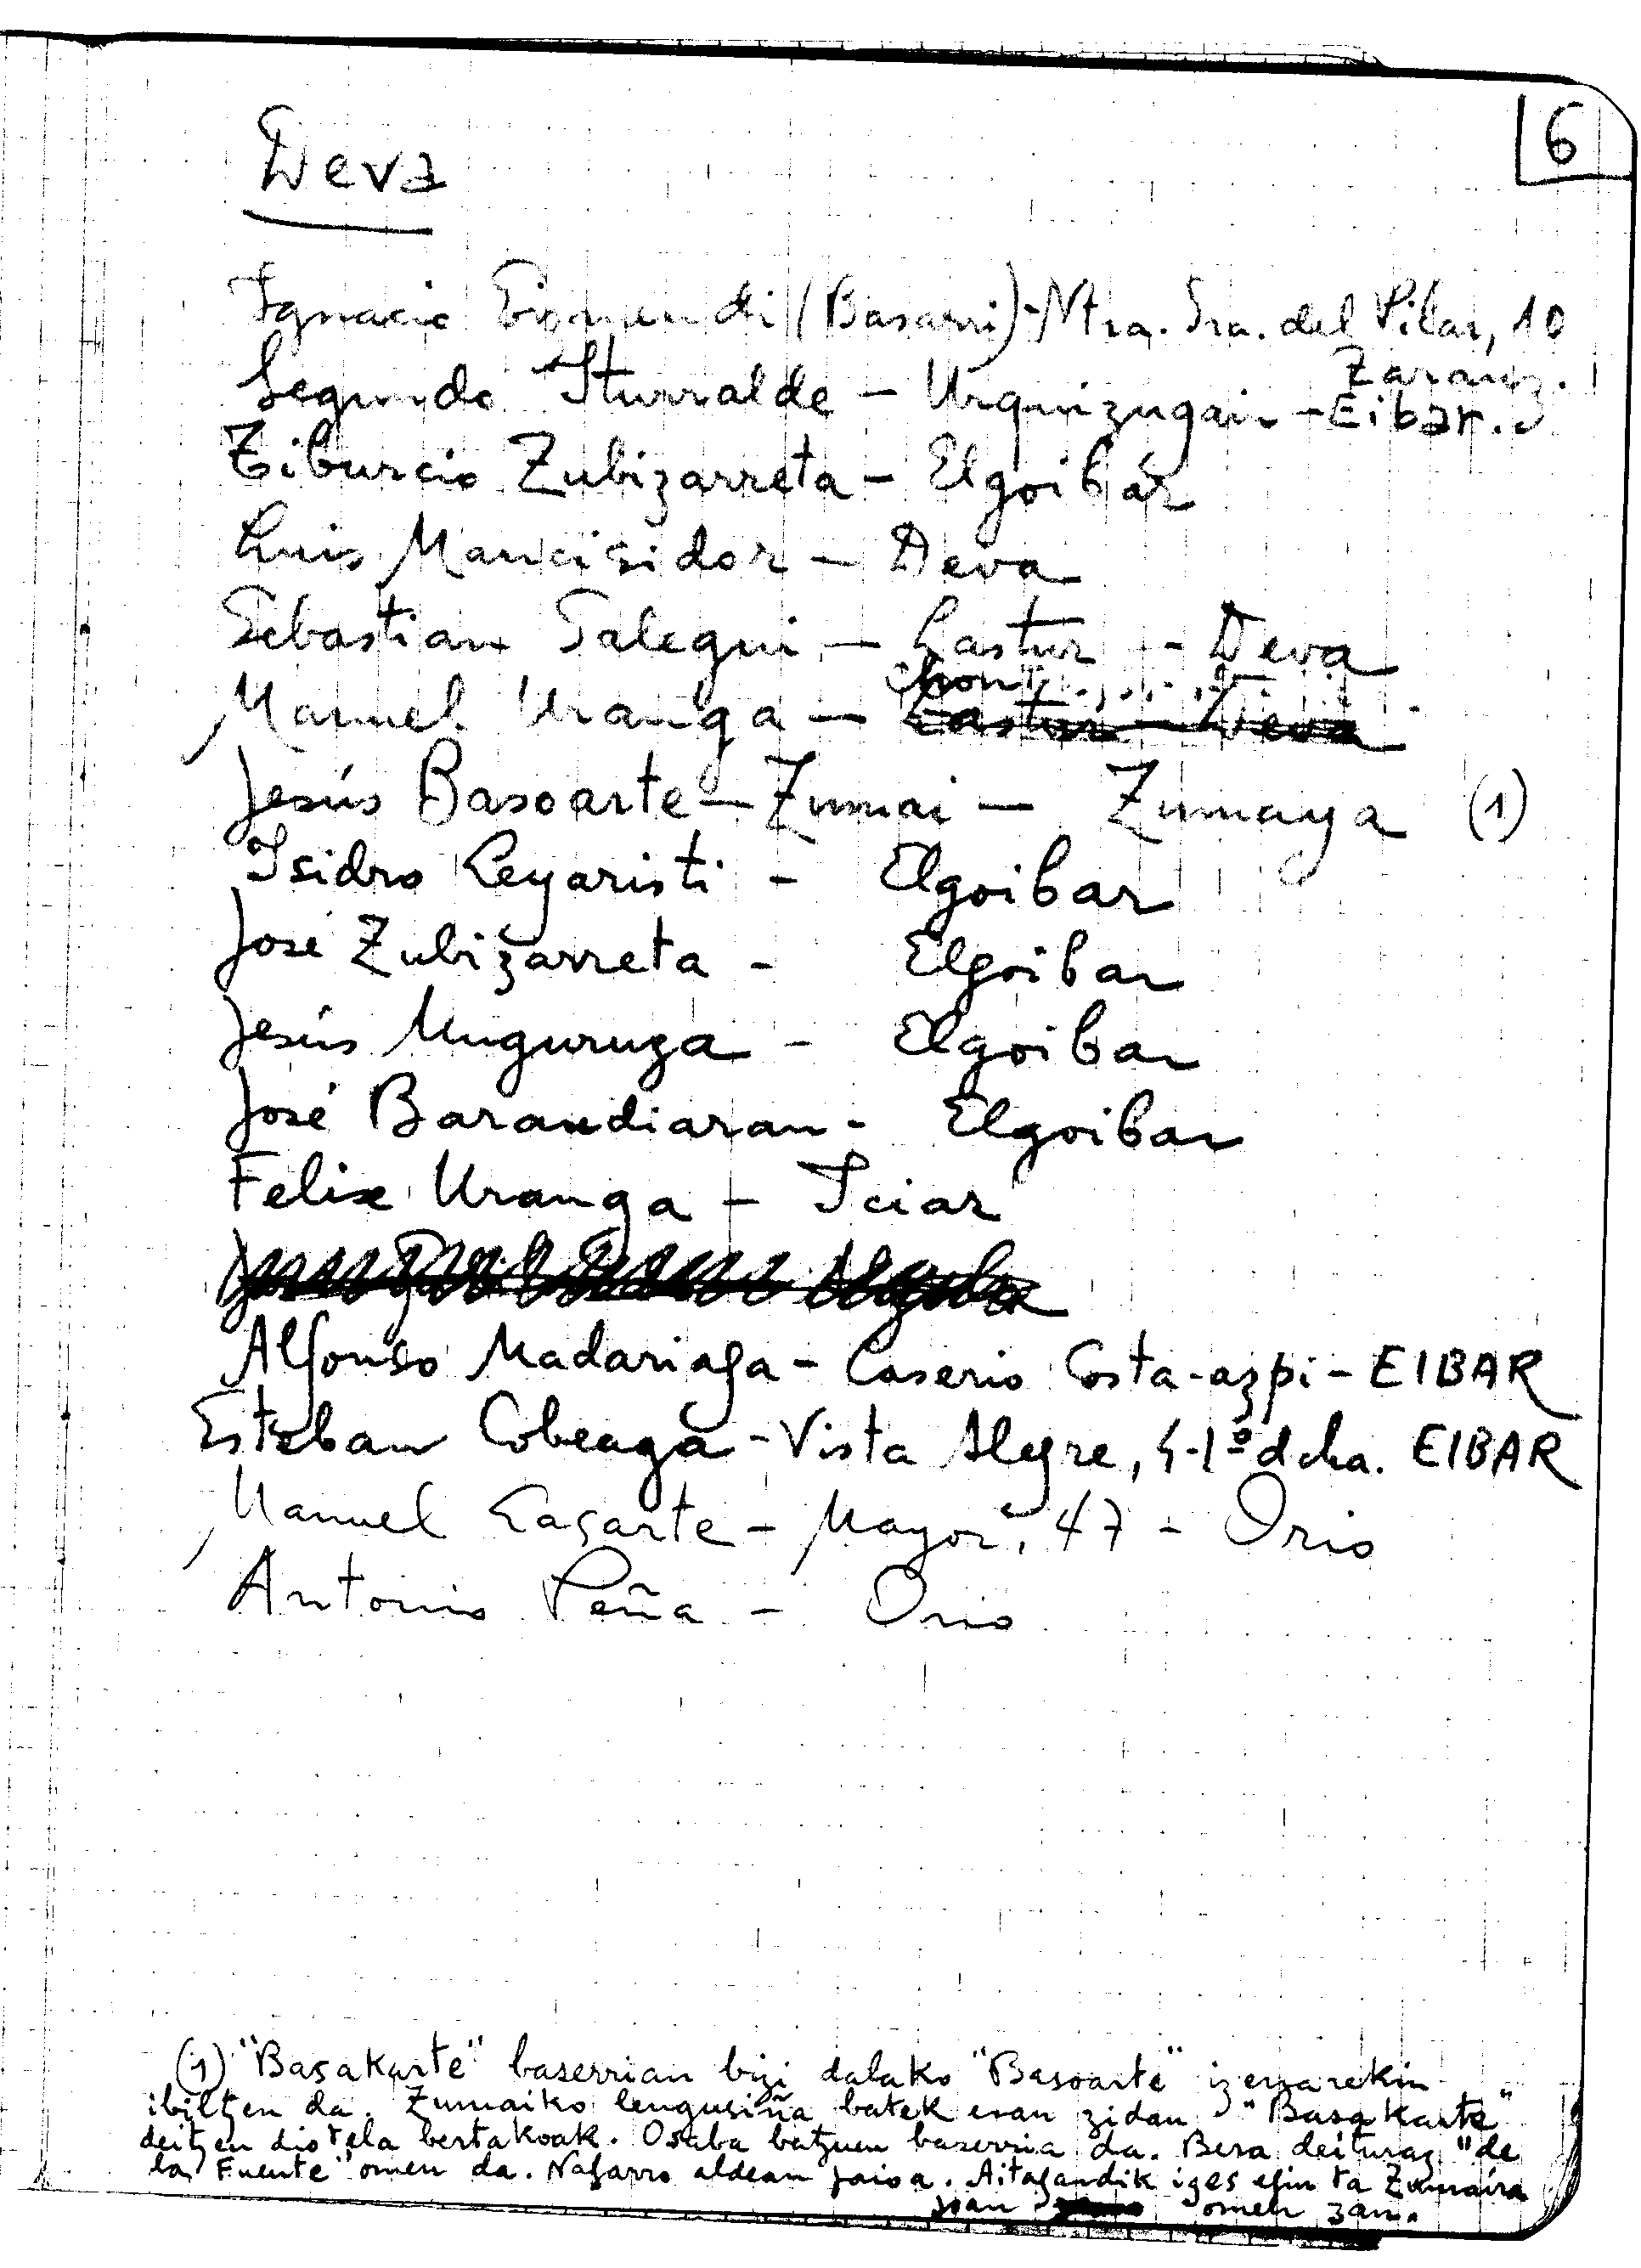 6
Deva
Ignacio Eizmendi (Basarri) - Ntra. Sra. del Pilar, 10
Zarauz.
Segundo Iturralde - Urquizugain - Eibar.
Tiburcio Zubizarreta - Elgoibar
Luis Mancisidor - Deva
Sebastian Salegui - Lastur - Deva
Manuel Uranga - Lastur - Deva
Jesús Basoarte - Zumai - Zumaya (1)
Isidro Leyaristi - Elgoibar
José Zubizarreta - Elgoibar
Jesús Muguruza - Elgoibar
José Barandiaran - Elgoibar
Felix Uranga - Iciar
Alfonso Madariaga - Caserio Costa-azpi - EIBAR
Esteban Cobeaga - Vista Alegre, 4-1º dcha. EIBAR
Manuel Lasarte - Mayor, 47 - Orio
Antonio Peña - Orio
(1) "Basakarte" baserrian bizi dalako "Basoarte" izenarekin
ibiltzen da. Zumaiko lengusiña batek esan zidan "Basakarte"
deitzen diotela bertakoak. Osaba batzuen baserria da. Bera deituraz "de
la Fuente" omen da. Nafarro aldean jaioa. Aitagandik iges egin ta Zumaira
joan omen zan.